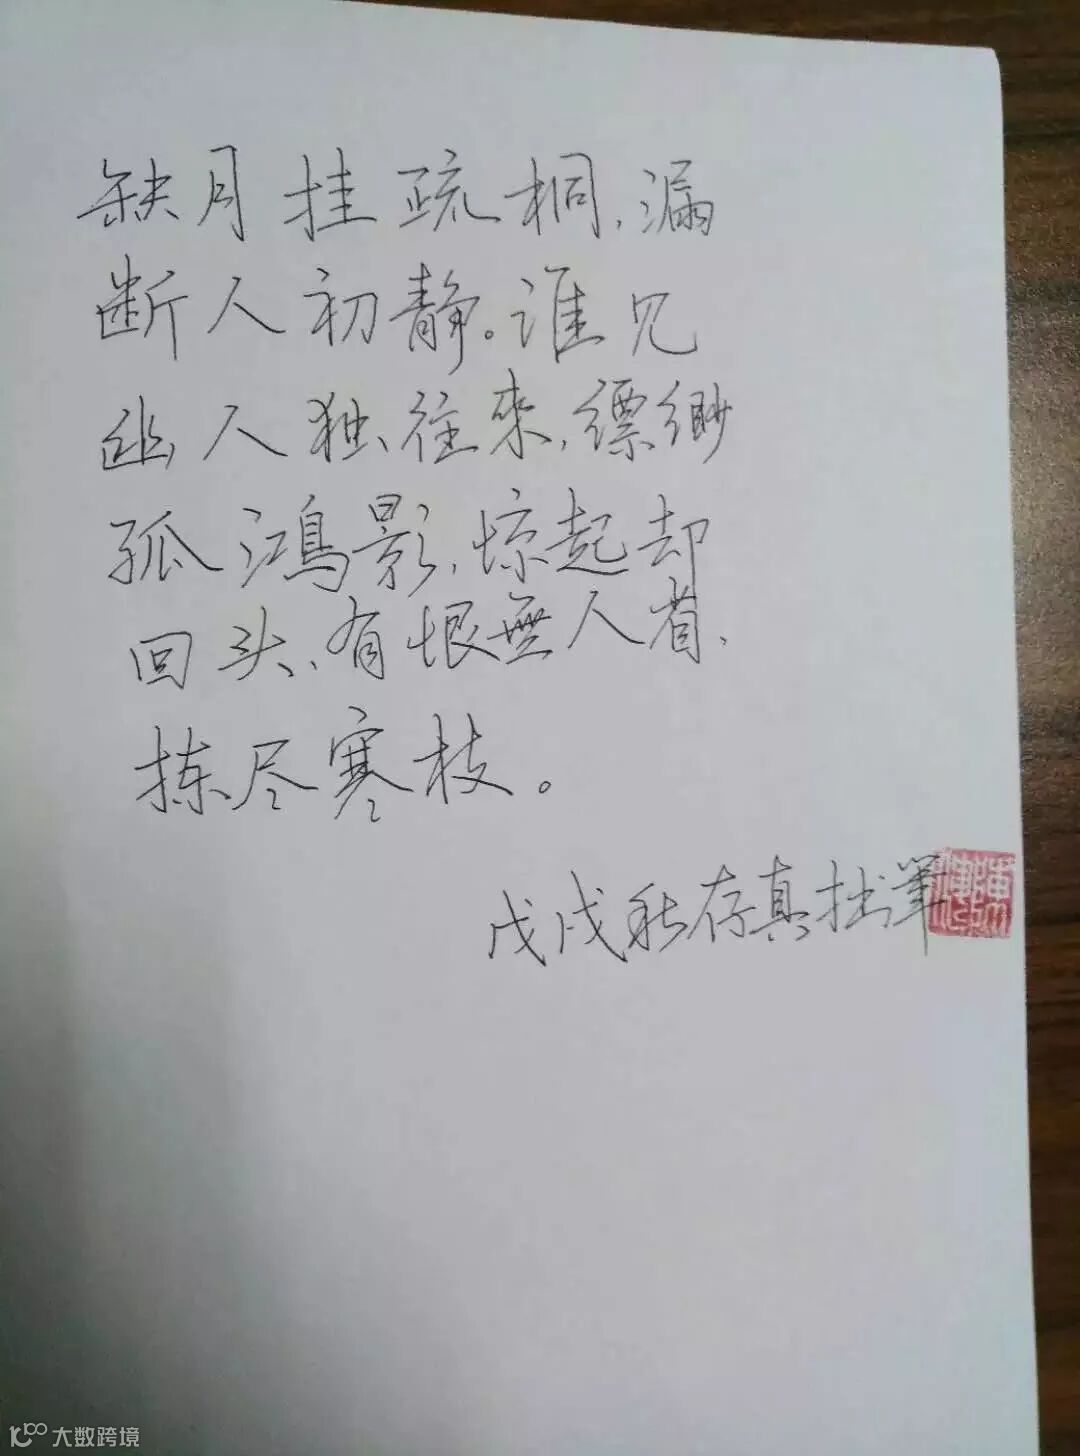 缺月挂疏桐,漏
断人初静。谁见
幽人独往来,缥缈
孤鸿影,惊起却
回头、有恨無人省、
拣尽寒枝。
戊戌秋存真拙筆
大数跨境